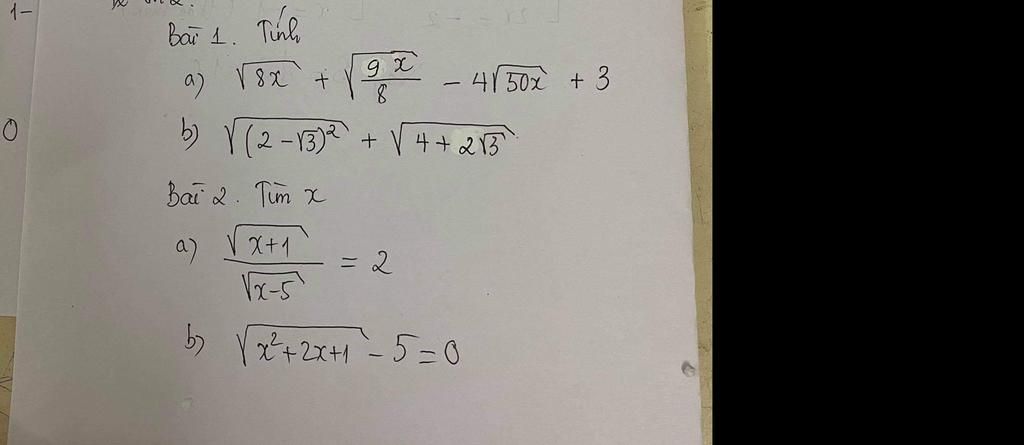 1-
Bài 1. Tính
a) √(8x) + √(9x/8) - 4√(50x) + 3
0
b) √((2-√3)²) + √(4+2√3)
Bài 2. Tìm x
a) √(x+1)/√(x-5) = 2
b) √(x²+2x+1) - 5 = 0